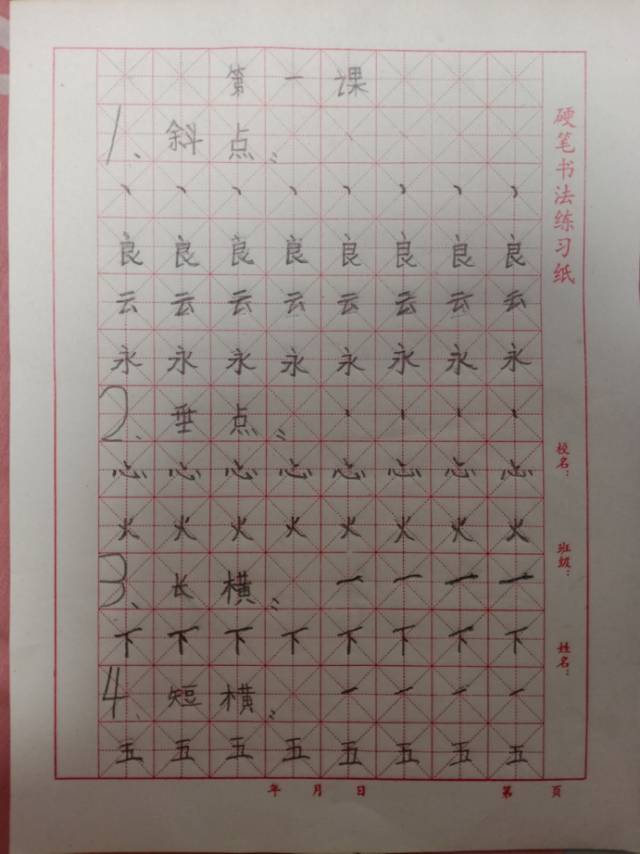 第一课
1、斜点:
丶丶丶丶丶丶丶丶
良良良良良良良良
云云云云云云云云
永永永永永永永永
2、垂点:
心心心心心心心心
火火火火火火火火
3、长横: 一一一一
下下下下下下下下
4、短横: 一一一一
五五五五五五五五
硬笔书法练习纸
校名:
班级:
姓名:
年 月 日 第 页